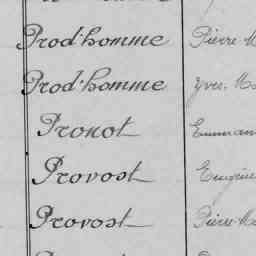 Prod'homme Pierre M
Prod'homme Yves. Ma
Pronot Emman
Provost Eugène
Provost Pierre Ma